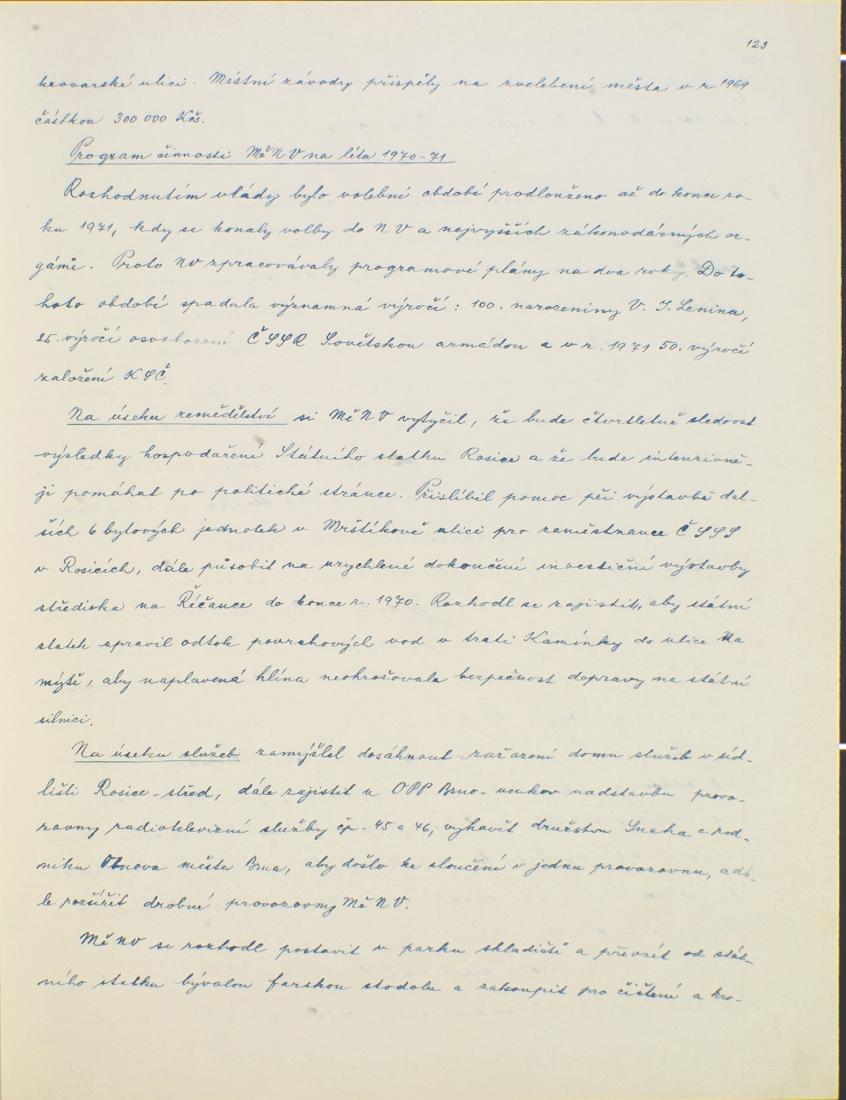 123
kovarské ulici. Místní závody přispěly na zvelebení města v r. 1969
částkou 300 000 Kčs.
Program činnosti MěNV na léta 1970-71
Rozhodnutím vlády bylo volební období prodlouženo až do konce ro-
ku 1971, kdy se konaly volby do NV a nejvyšších zákonodárných or-
gánů. Proto NV zpracovávaly programové plány na dva roky. Do to-
hoto období spadala významná výročí: 100. narozeniny V. I. Lenina,
25. výročí osvobození ČSSR Sovětskou armádou a v r. 1971 50. výročí
založení KSČ.
Na úseku zemědělství si MěNV vytyčil, že bude čtvrtletně sledovat
výsledky hospodaření Státního statku Rosice a že bude intenzivně-
ji pomáhat po politické stránce. Přislíbil pomoc při výstavbě dal-
ších 6 bytových jednotek v Mrštíkově ulici pro zaměstnance ČSSS
v Rosicích, dále působit na urychlené dokončení investiční výstavby
střediska na Říčance do konce r. 1970. Rozhodl se zajistit, aby státní
statek upravil odtok povrchových vod v trati Kamínky do ulice Na
mýtě, aby naplavená hlína neohrožovala bezpečnost dopravy na státní
silnici.
Na úseku služeb zamýšlel dosáhnout zařazení domu služeb v síd-
lišti Rosice-střed, dále zajistit u OPP Brno-venkov nadstavbu provo-
zovny radiotelevizní služby čp. 45 a 46, vyhavět družstvu Snaha a pod-
niku Obnova města Brna, aby došlo ke sloučení v jednu provozovnu, a dá-
le rozšířit drobné provozovny MěNV.
MěNV se rozhodl postavit v parku skladiště a převzít od stát-
ního statku bývalou farskou stodolu a zakoupit pro čištění a kro-